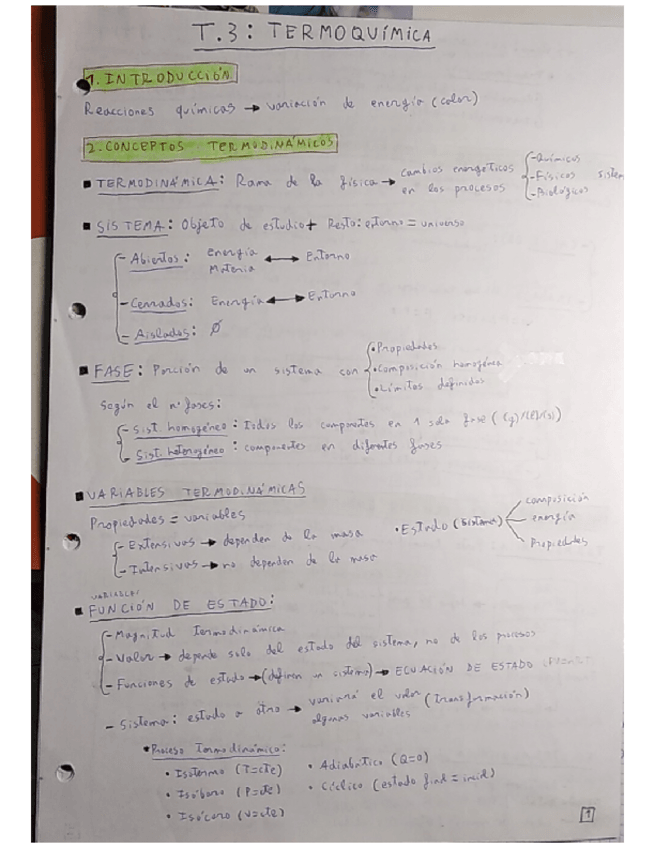 T.3: TERMOQUÍMICA
1. INTRODUCCIÓN
Reacciones químicas → variación de energía (calor)
2. CONCEPTOS TERMODINÁMICOS
▪ TERMODINÁMICA: Rama de la física → cambios energéticos en los procesos
- Químicos
- Físicos
- Biológicos
sistem
▪ SISTEMA: Objeto de estudio + Resto: entorno = universo
- Abiertos: energía Materia ↔ Entorno
- Cerrados: Energía ↔ Entorno
- Aislados: Ø
▪ FASE: Porción de un sistema con
• Propiedades
• Composición homogénea
• Límites definidos
Según el nº fases:
- Sist. homogéneo: Todos los componentes en 1 sola fase ( (g)/(l)/(s))
- Sist. heterogéneo: componentes en difentes fases
▪ VARIABLES TERMODINÁMICAS
Propiedades = variables
- Extensivas → dependen de la masa
- Intensivas → no dependen de la masa
• Estado (sistema)
composición
energía
Propiedades
VARIABLES
▪ FUNCIÓN DE ESTADO:
- Magnitud Termodinámica
- Valor → depende solo del estado del sistema, no de los procesos
- Funciones de estado → (definen un sistema) → ECUACIÓN DE ESTADO
- Sistema: estado a otro → variará el valor algunas variables (Transformación)
• Proceso Termodinámico:
• Isotermo (T=cte)
• Isóbaro (P=cte)
• Isócoro (V=cte)
• Adiabático (Q=0)
• Cíclico (estado final = inicial)
1